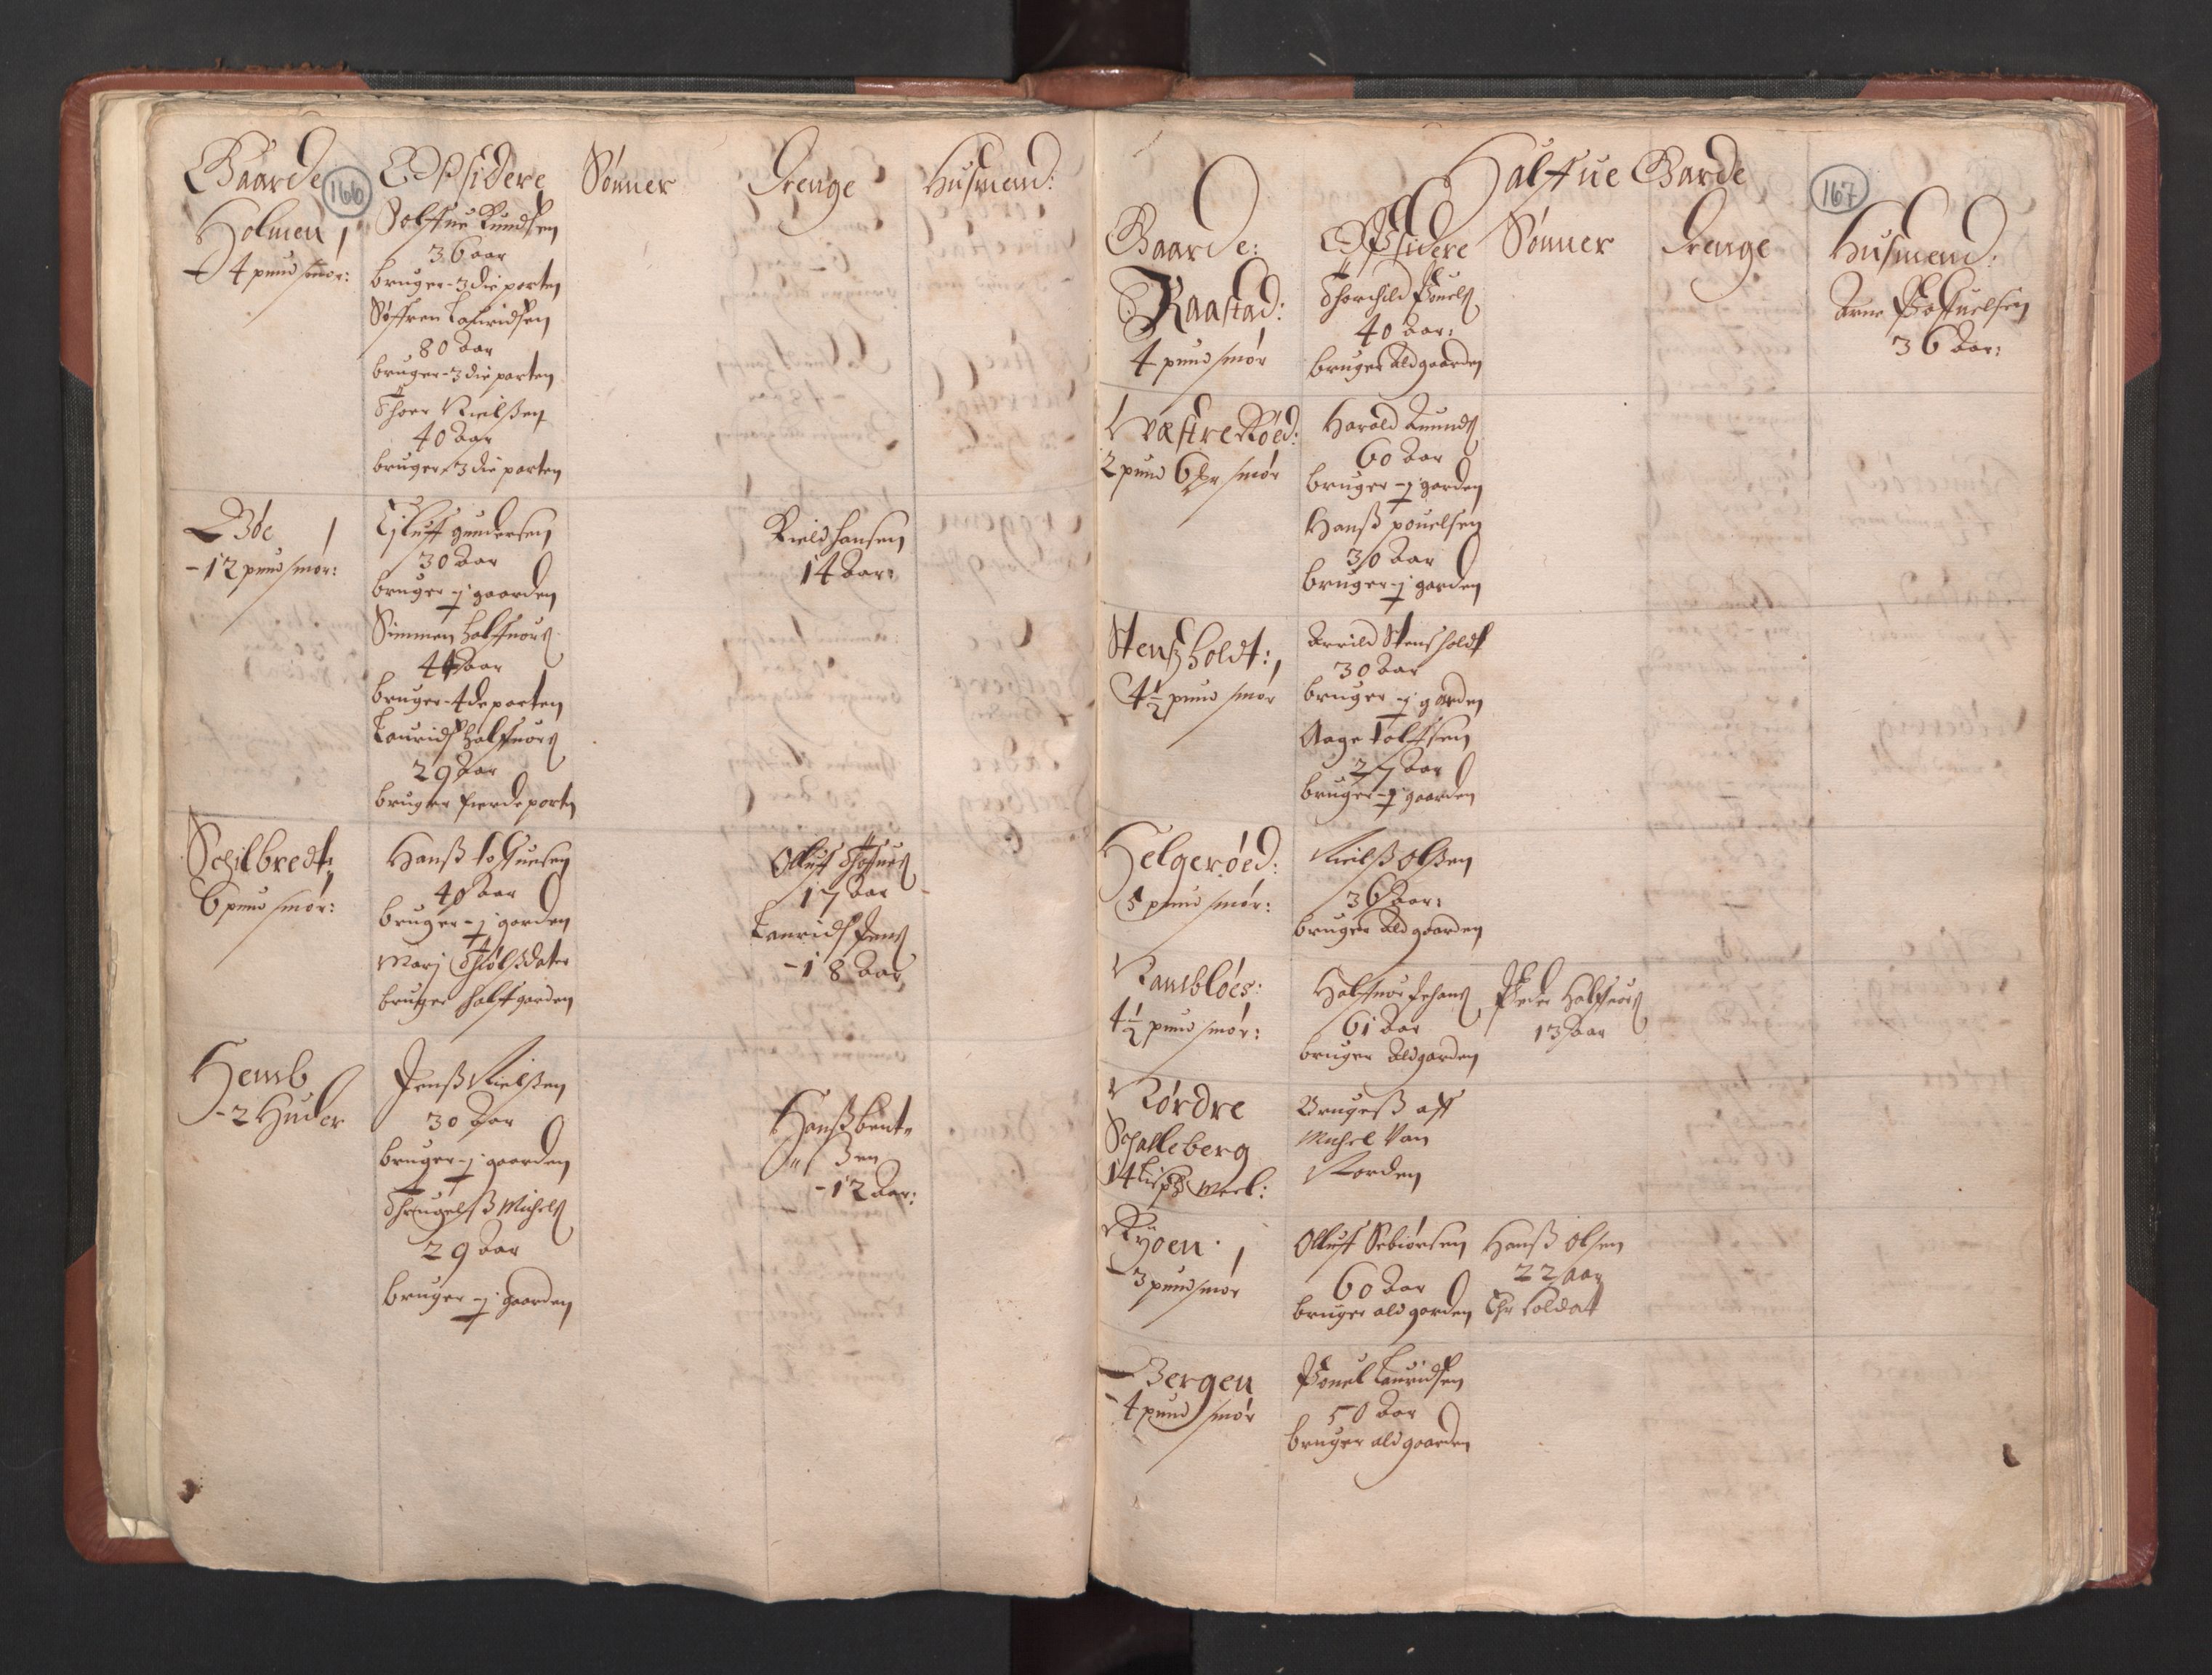 Gaarde 166 Opsidere Sønner Drenge Husmend:
Holmen
4 pund smør:
Knudsen
36 aar
bruger 3die parten
Søffren Lauridsen
80 Aar
bruger 3die parten
Thoer Nielsen
40 Aar
bruger 3die parten
Bøe
12 pund smør:
Eluff gundersen
30 Aar
bruger j gaarden
Simmen Halfuors
Aar
bruger 4de parten
Laurids Halfuors
29 Aar
bruger fierde part
Kield hansen
14 Aar:
Schilbredt
6 pund smør:
Hanß
40 Aar
bruger j garden
Marj
bruger halff garden
Olluf
17 Aar
Laurids Jens
18 Aar
Hemb
2 Huder
Jenß Nielsen
30 Aar
bruger j gaarden
Michels
29 Aar
bruger j gaarden
Hanß bent-
sen
12 Aar:
Halffue Garde
167
Gaarde: Opsidere Sønner Drenge Husmend:
Raastad:
4 pund smør
Thorchild Pouels
40 Aar:
bruger Ald gaarden
Arne
36 Aar:
Wæstre Røed:
2 pund 6 smør
Harald Amunds
60 Aar
bruger j garden
Hanß pouelsen
30 Aar
bruger j garden
Stenßholdt:
4½ pund smør
Arvild Stensholdt
30 Aar
bruger j garden
Aage
27 Aar
bruger j gaarden
Helgerøed:
5 pund smør:
Nielß Olßen
36 Aar:
bruger Ald gaarden
Rambløes:
4½ pund smør:
Halfuor Johans
61 Aar
bruger Ald garden
Peder Halfuors
13 Aar
Nørdre
Schalleberg
14 meel:
Brugeß aff
Michel Van
Norden
Ryoen
3 pund smør
Olluf Sebiørsen
60 Aar
bruger ald garden
Hanß Olsen
22 Aar
Ehr soldat
Bergen
4 pund smør
Pouel Lauridsen
50 Aar
bruger ald gaarden